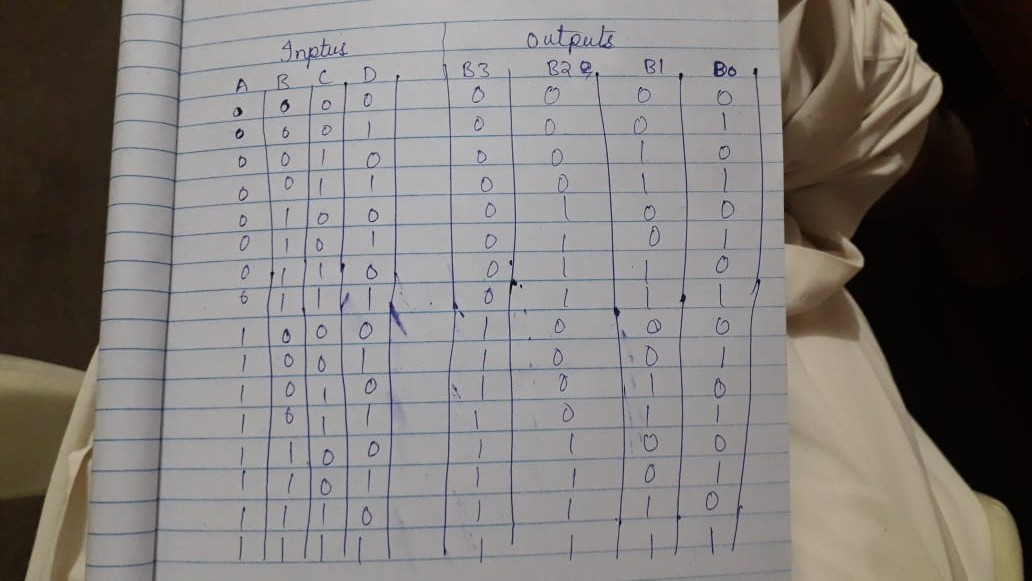 Inptus outputs
A B C D B3 B2 B1 B0
0 0 0 0 0 0 0 0
0 0 0 1 0 0 0 1
0 0 1 0 0 0 1 0
0 0 1 1 0 0 1 1
0 1 0 0 0 1 0 0
0 1 0 1 0 1 0 1
0 1 1 0 0 1 1 0
0 1 1 1 0 1 1 1
1 0 0 0 1 0 0 0
1 0 0 1 1 0 0 1
1 0 1 0 1 0 1 0
1 0 1 1 1 0 1 1
1 1 0 0 1 1 0 0
1 1 0 1 1 1 0 1
1 1 1 0 1 1 1 0
1 1 1 1 1 1 1 1